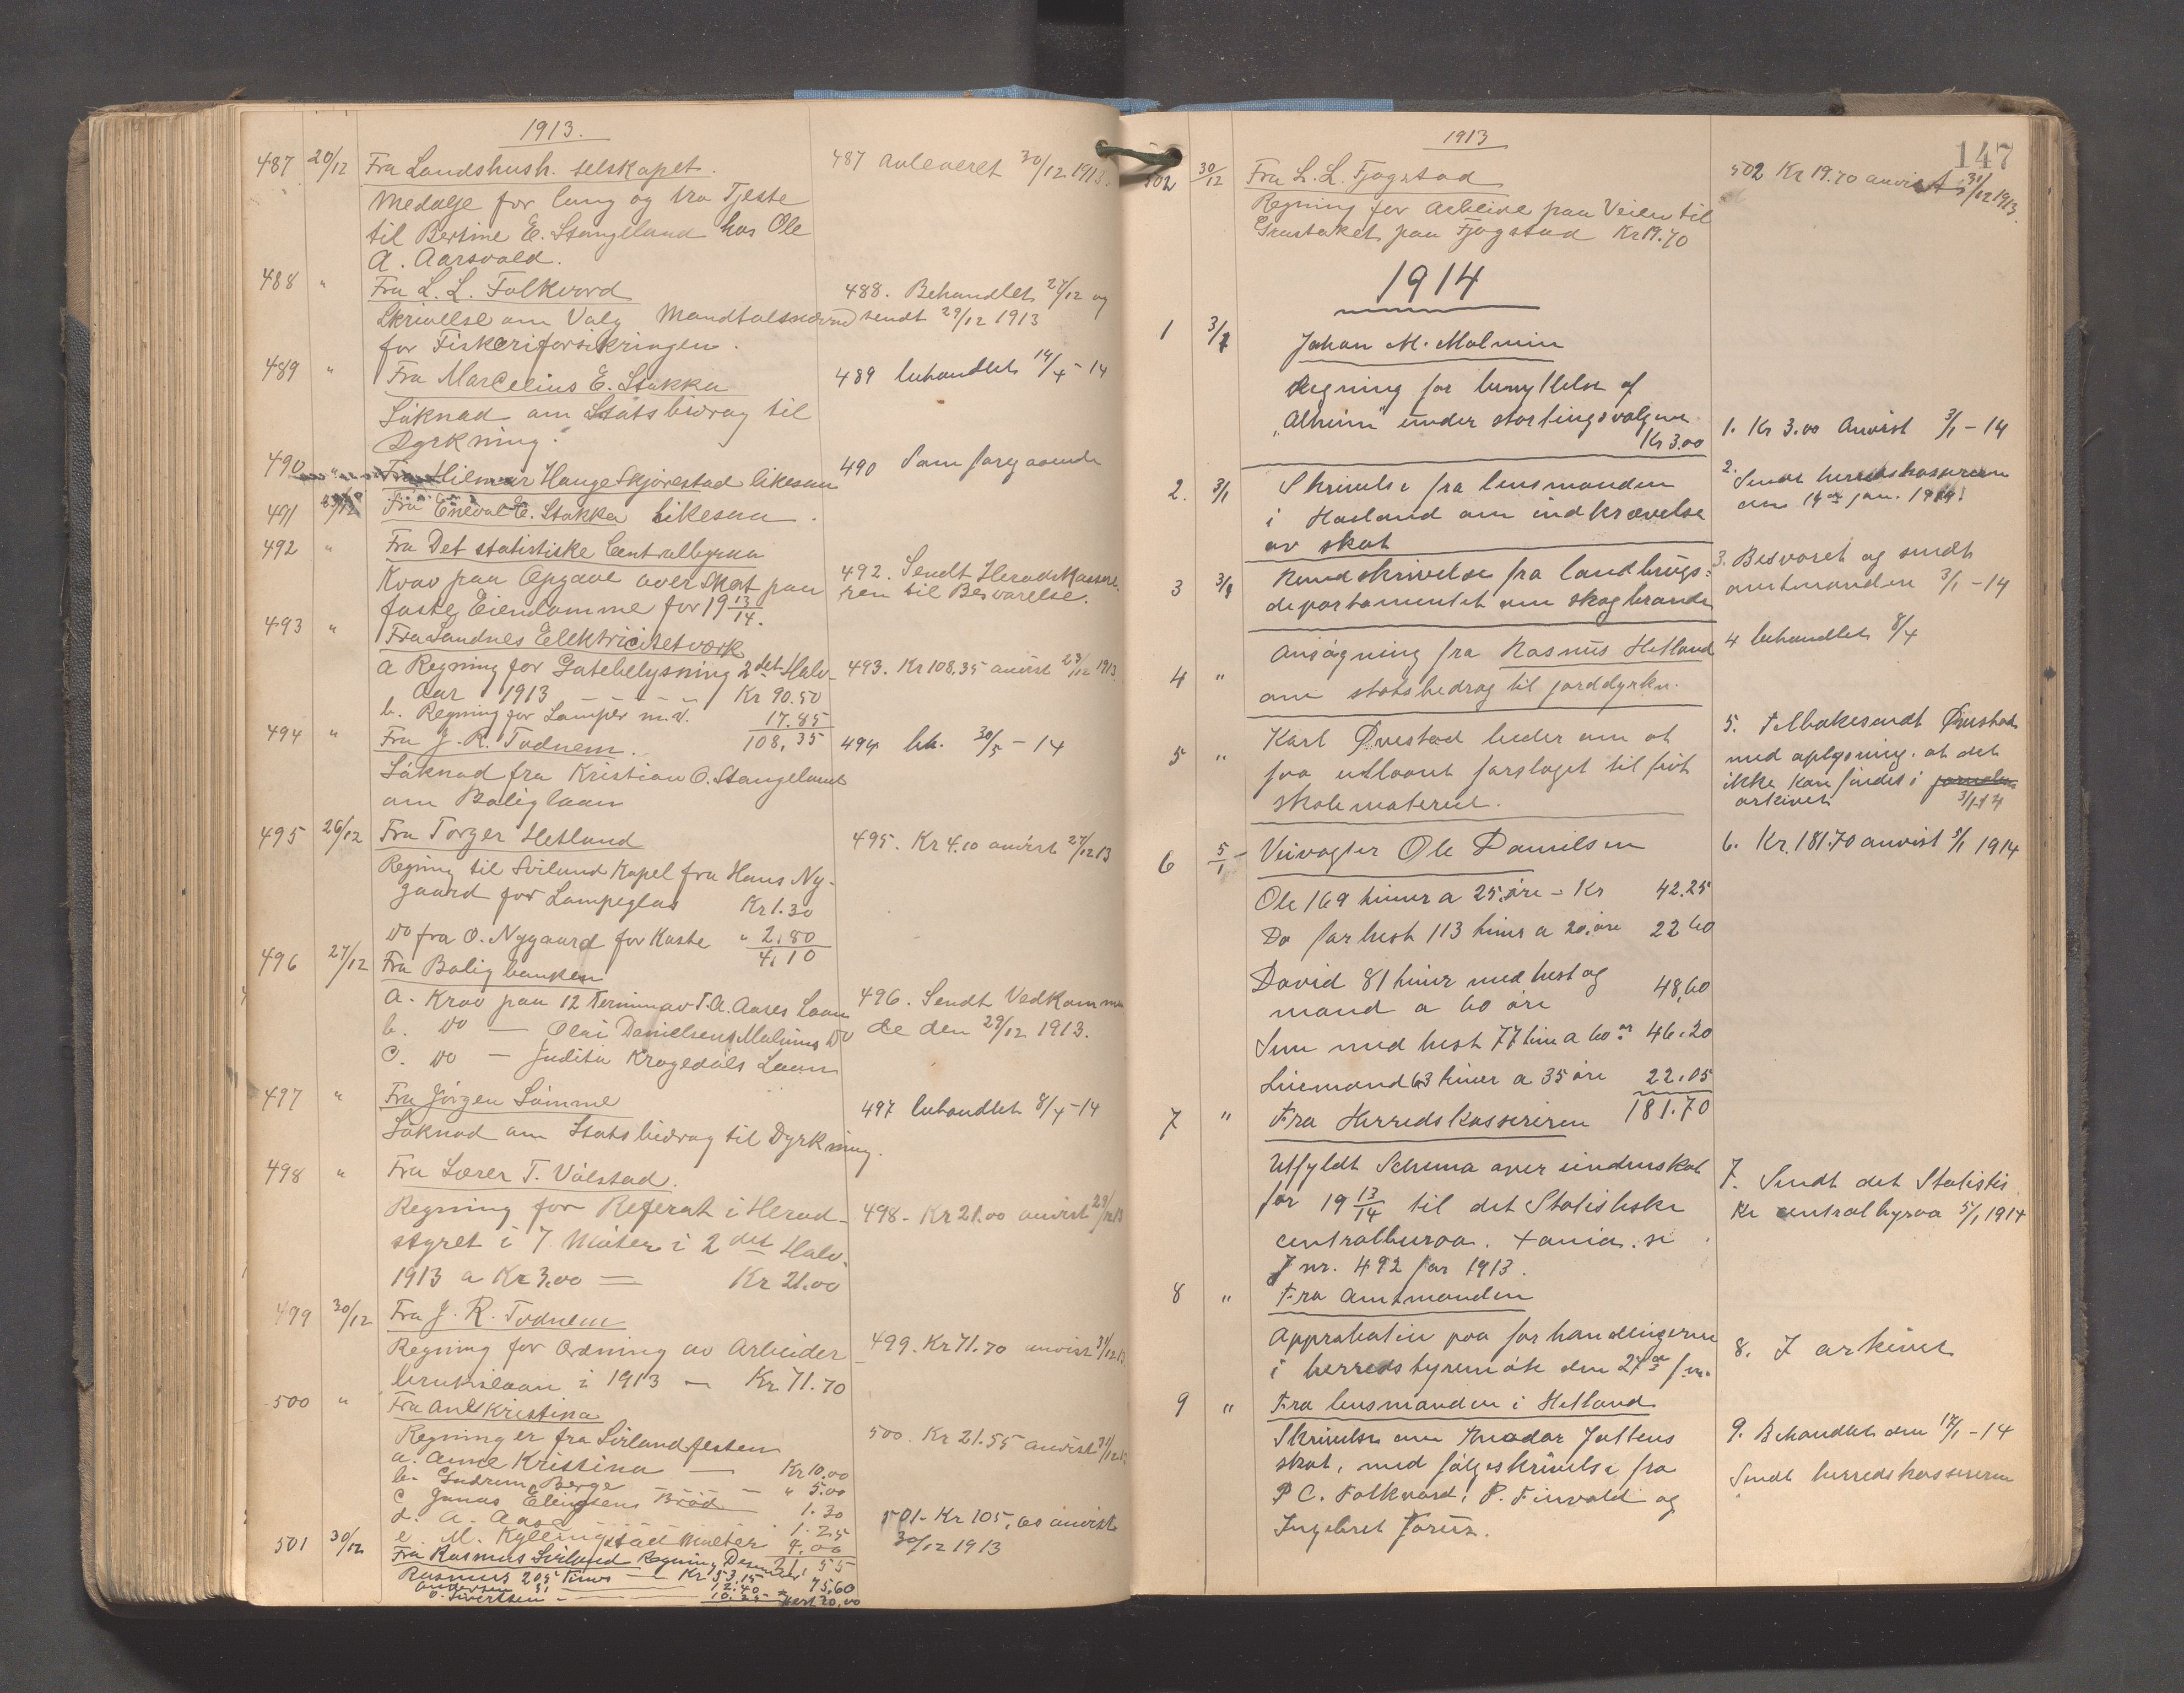 1913.
487 20/12 Fra Landshush. selskapet. 487 avleveret 30/12 1913.
Medalje for lang og tro Tjeste
til Bertine E. Stangeland hos Ole
A. Aarsvold.
488 " Fra L. L. Folkvord 488. Behandlet 27/12 og
Skrivelse om Valg Mandtalsnævnd sendt 29/12 1913
for Fiskeriforsikringen.
489 " Fra Marcelius E. Stokka 489 behandlet 14/4 - 14
Søknad om Statsbidrag til
Dyrkning.
490 " Fra Hilmar Hauge Skjørestad likesaa 490 Som foregaaende
491 23/12 Fra Eneval E. Stokka Likesaa.
492 " Fra Det statistiske Centralbyraa
Krav paa Opgave over Skat paa 492. Sendt Herredskassere
faste Eiendomme for 19 13/14. ren til Besvarelse.
493 " Fra Sandnes Elektricitetverk
a Regning for Gatebelysning 2det Halv- 493. Kr 108,35 anvist 23/12 1913.
Aar 1913 — — — Kr 90.50
b. Regning for Lamper m.v. 17.85
494 " Fra J. R. Todnem. 108,35 494 bh. 30/5 - 14
Søknad fra Kristian O. Stangeland
om Boliglaan
495 26/12 Fra Torger Hetland 495. Kr 4.10 anvist 27/12 13
Regning til Sviland Kapel fra Hans Ny-
gaard for Lampeglas Kr 1.30
Do fra O. Nygaard for Koste " 2.80
4,10
496 27/12 Fra Boligbanken
a. Krav paa 12 Termin av T. A. Aases Laan 496. Sendt Vedkommen
b. Do — Olai Danielsens Malmins Do de den 29/12 1913.
c. Do — Judita Krogedals Laan
497 " Fra Jørgen Sømme 497 behandlet 8/4 - 14
Søknad om Statsbidrag til Dyrkning.
498 " Fra Lærer T. Vølstad.
Regning for Referat i Herred- 498 - Kr 21.00 anvist 29/12 13
styret i 7 Møter i 2det Halv.
1913 a Kr 3.00 — Kr 21.00
499 30/12 Fra J. R. Todnem
Regning for Ordning av Arbeider 499. Kr 71.70 anvist 31/12 13
bruksloan i 1913 — Kr 71.70
500 " Fra Ane Kristina
Regninger fra Svilandfesten 500. Kr 21.55 anvist 31/12 13
a. Anne Kristina — Kr 10.00
b. Gudrun Berge — " 5.00
c Jonas Elingsens Brød 1.30
d. A. Aase 1.25
e M. Kyllingstad Melter 4,00
501 30/12 Fra Rasmus Sviland Regning Desember 21,55 501 - Kr 105,60 anvist
30/12 1913
Rasmus 205 Timer — Kr 53.15 75,60
Andersen 31 12.40
O. Sivertsen 10.25 Hest 30,00
147
1913
502 30/12 Fra L. L. Fjogstad 502 Kr 19.70 anvist 31/12 1913.
Regning for Arbeide paa Veien til
Grustaket paa Fjogstad Kr 19.70
1914
1 3/1 Johan M. Malmin
Regning for benyttelse af
"Alheim" under stortingsvalgene
Kr 3.00 1. Kr 3.00 Anvist 3/1 - 14
2. 3/1 Skrivelse fra lensmanden 2. Sendt herredskassereren
i Høiland om indkrævelse den 14de jan. 1914.
av skat
3 3/1 Rundskrivelse fra landbrugs- 3. Besvaret og sendt
departamentet om skogbrande amtmanden 3/1 - 14
4 " Ansøgning fra Rasmus Hetland 4 behandlet 8/4
om statsbedrag til jorddyrkn.
5 " Karl Øvestad beder om at 5. Tilbakesendt Øvestad
faa udlaant forslaget til frit med oplysning. at det
skolemateriel. ikke kan findes i
arkivet 3/1 14
6 5/1 Veivogter Ole Danielsen 6. Kr. 181.70 anvist 5/1 1914
Ole 169 timer a 25 øre - Kr 42.25
Do for hest 113 timer a 20 øre 22 60
David 81 timer med hest og
mand a 60 øre 48,60
Sven med hest 77 time a 60 ør 46.20
Leiemand 63 timer a 35 øre 22.05
7 " Fra Herredskassereren 181.70
Utfyldt Schema over eiendomskat 7. Sendt det Statistis
for 19 13/14 til det Statistiske ke centralbyraa 5/1 1914
centralburaa. Xania. se
J nr. 492 for 1913.
8 " Fra Amtmanden
Approbation paa forhandlingerne 8. I arkivet
i herredstyremøte den 27de f.m.
9 " Fra lensmanden i Hetland
Skrivelse om Theodor Jattens 9. Behandlet den 17/1 - 14
skat, med følgeskrivelse fra Sendt herredskassereren
P C. Folkvord, P. Finvold og
Ingebret